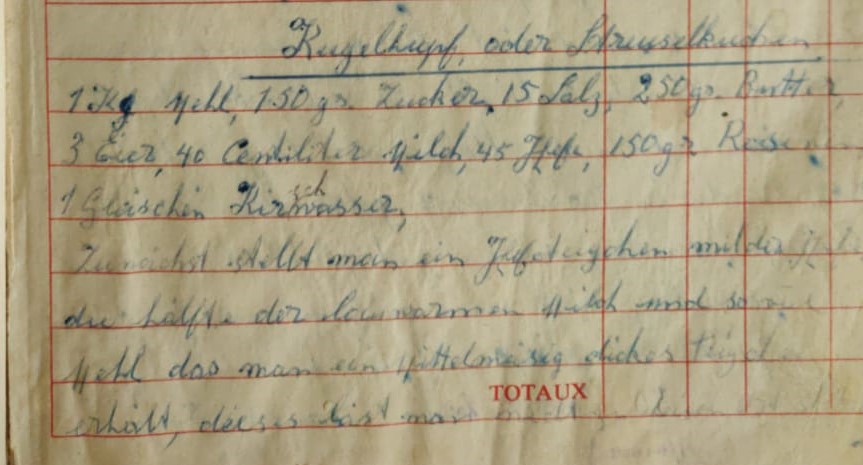 Kugelhupf, oder Streuselkuchen
1 Kg Mehl, 150 gr. Zucker, 15 Salz, 250 gr. Butter,
3 Eier, 40 Centiliter Milch, 45 Hefe, 150 gr
1 Gläschen Kirschwasser,
Zunächst stellt man ein Hefeteigchen mit der
die hälfte der lauwarmen Milch und
Mehl das man ein Mittelmäsig dickes
TOTAUX
erhält, dieses läst man